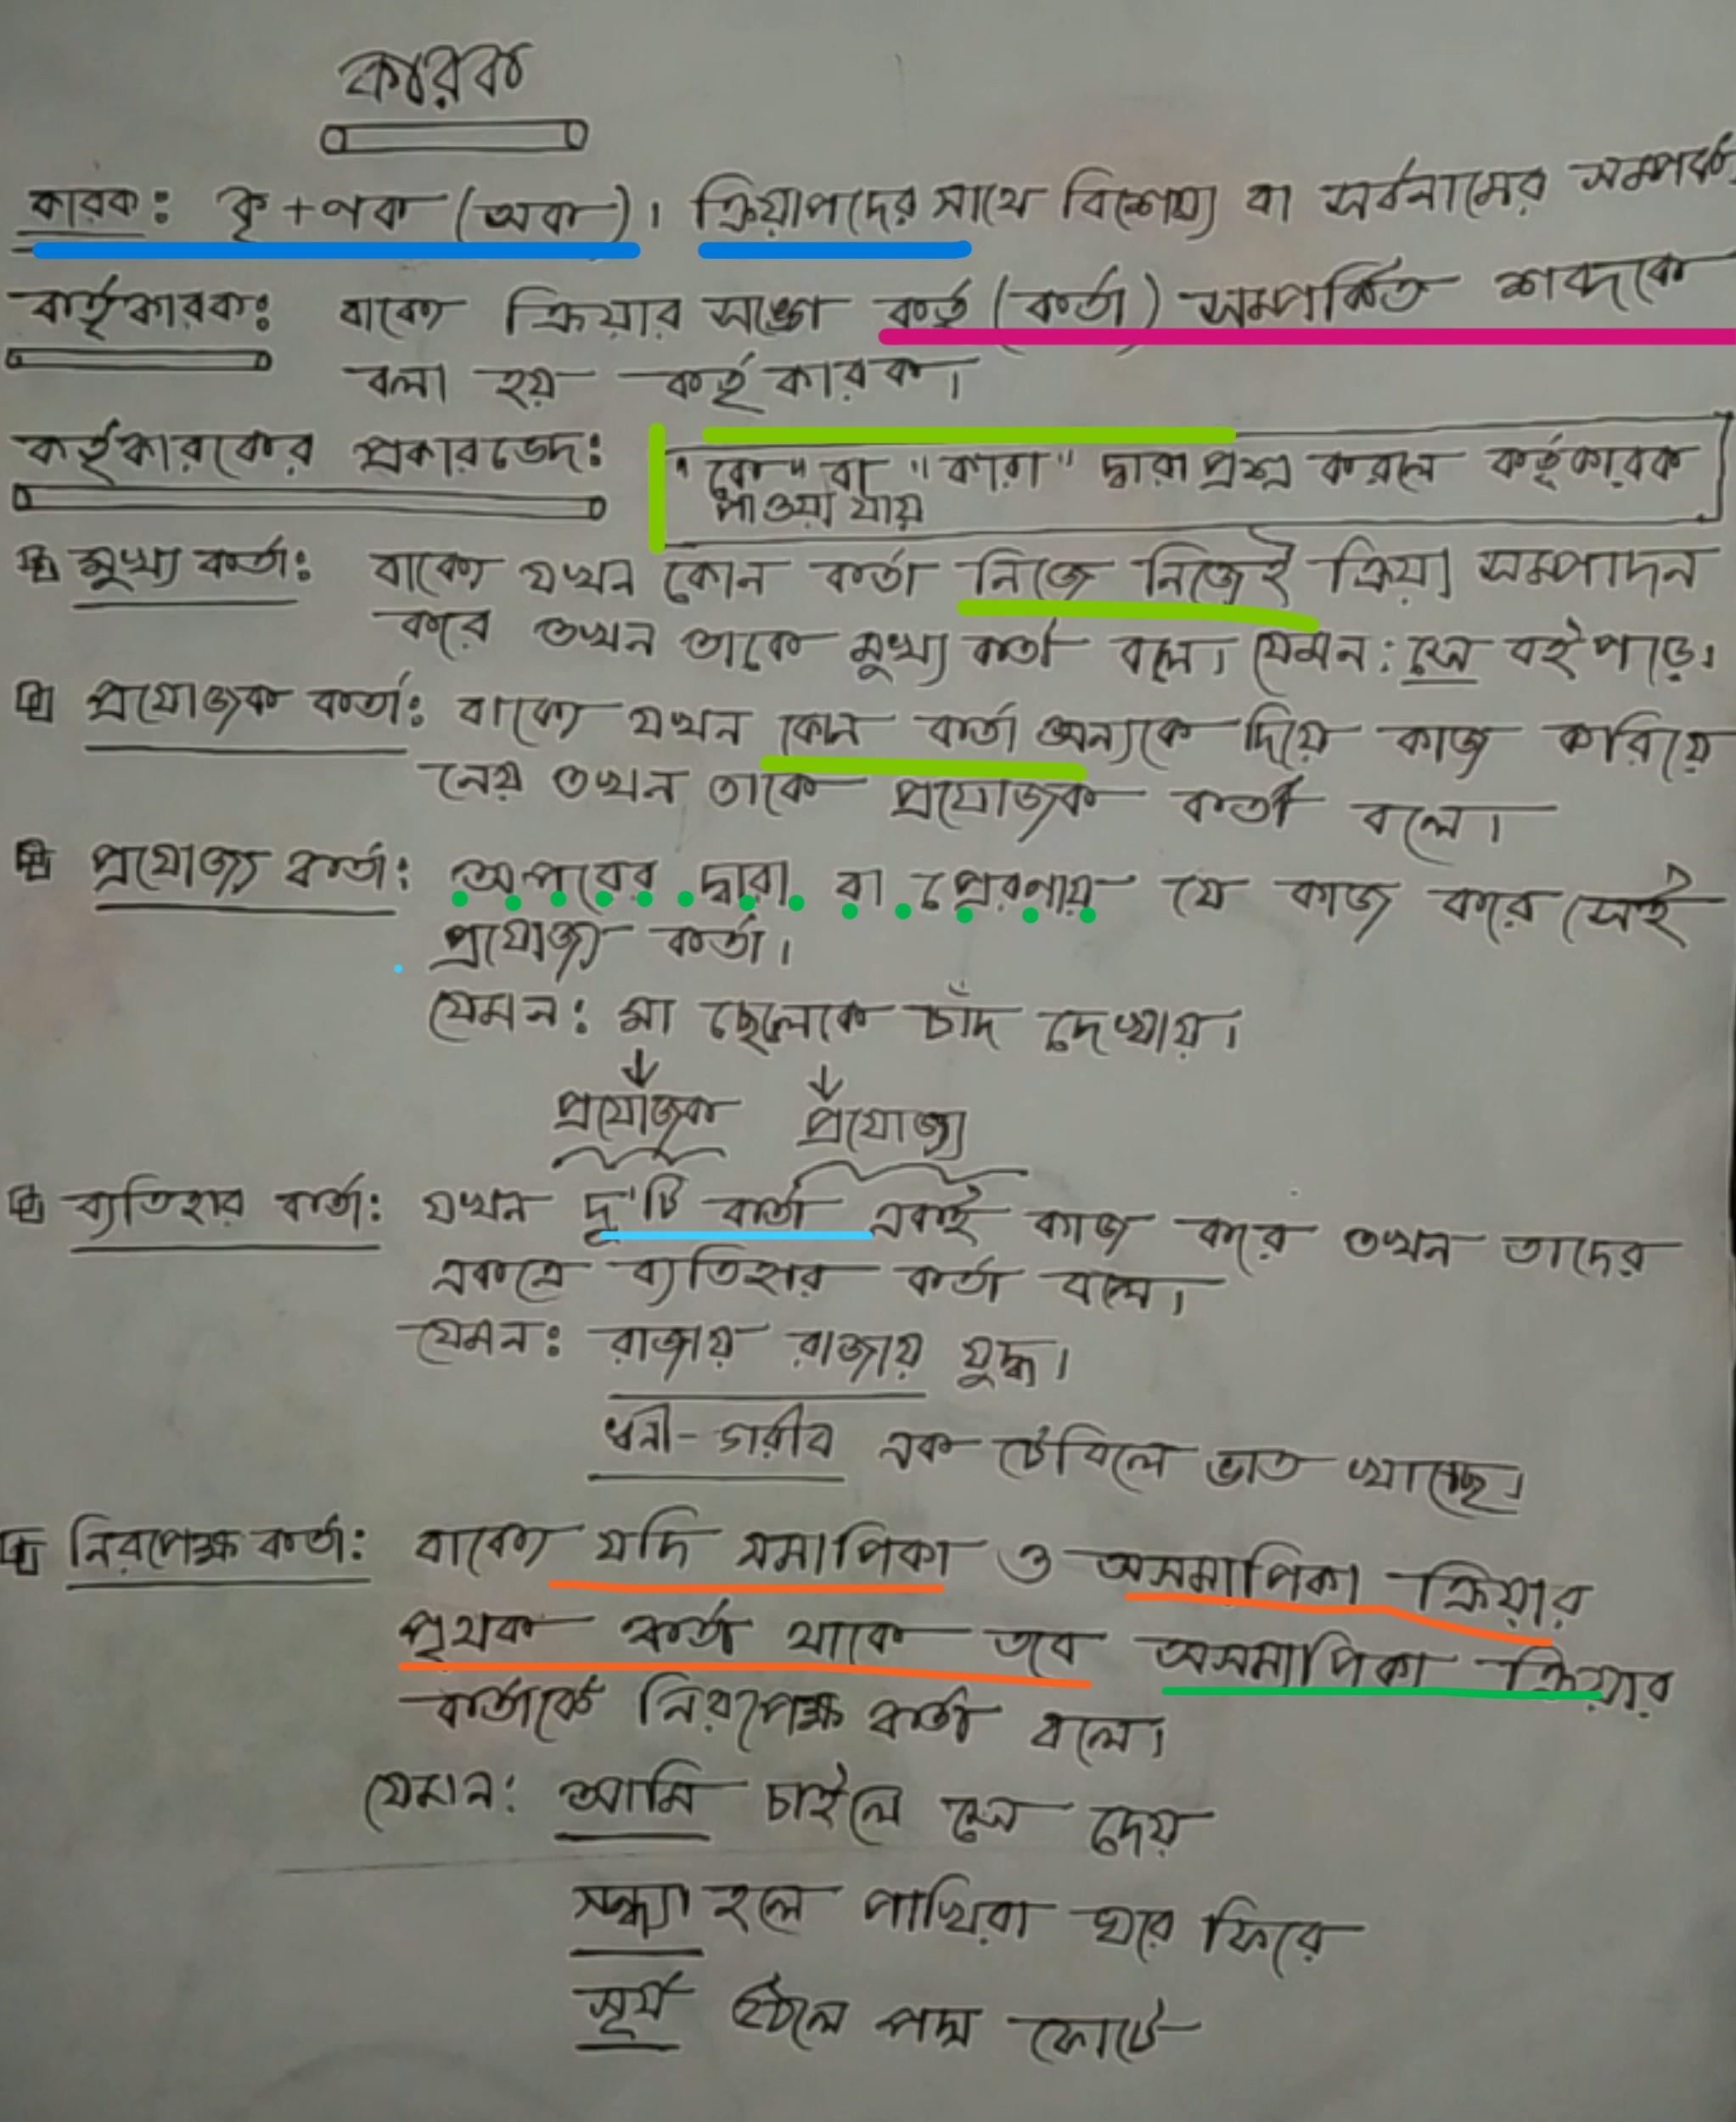 কারক
কারক: কৃ + ণক (অক)। ক্রিয়াপদের সাথে বিশেষ্য বা সর্বনামের সম্পর্ক
কর্তৃকারক: বাক্যে ক্রিয়ার সঙ্গে কর্তৃ (কর্তা) সম্পর্কিত শব্দকে
বলা হয় কর্তৃকারক।
কর্তৃকারকের প্রকারভেদ: "কে" বা "কারা" দ্বারা প্রশ্ন করলে কর্তৃকারক
পাওয়া যায়
মুখ্য কর্তা: বাক্যে যখন কোন কর্তা নিজে নিজেই ক্রিয়া সম্পাদন
করে তখন তাকে মুখ্য কর্তা বলে। যেমন: সে বই পড়ে।
প্রযোজক কর্তা: বাক্যে যখন কোন কর্তা অন্যকে দিয়ে কাজ করিয়ে
নেয় তখন তাকে প্রযোজক কর্তা বলে।
প্রযোজ্য কর্তা: অপরের দ্বারা বা প্রেরণায় যে কাজ করে সেই
প্রযোজ্য কর্তা।
যেমন: মা ছেলেকে চাঁদ দেখায়।
প্রযোজক প্রযোজ্য
ব্যতিহার কর্তা: যখন দু'টি কর্তা একই কাজ করে তখন তাদের
একত্রে ব্যতিহার কর্তা বলে।
যেমন: রাজায় রাজায় যুদ্ধ।
ধনী-গরীব এক টেবিলে ভাত খাচ্ছে।
নিরপেক্ষ কর্তা: বাক্যে যদি সমাপিকা ও অসমাপিকা ক্রিয়ার
পৃথক কর্তা থাকে তবে অসমাপিকা ক্রিয়ার
কর্তাকে নিরপেক্ষ কর্তা বলে।
যেমন: আমি চাইলে সে দেয়
সন্ধ্যা হলে পাখিরা ঘরে ফিরে
সূর্য উঠলে পদ্ম ফোটে